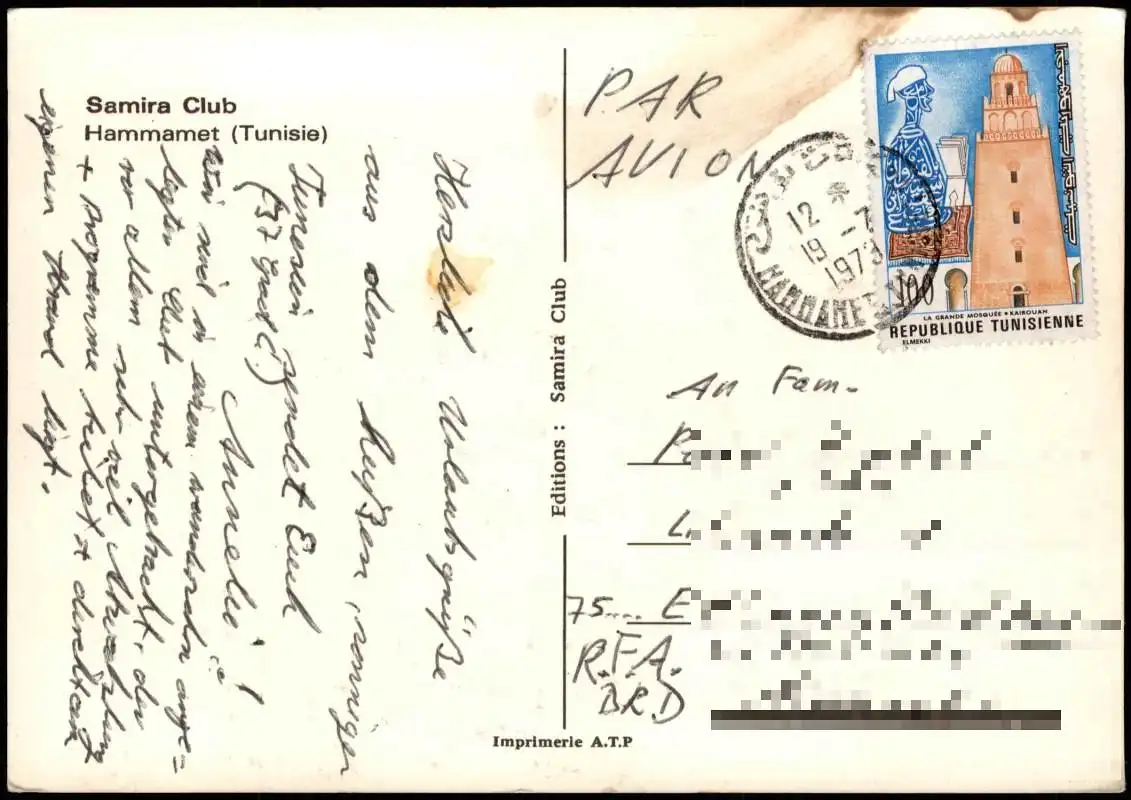 Samira Club
Hammamet (Tunisie)
Herzliche Urlaubsgrüße
aus dem heißen, sonnigen
Tunesien sendet Euch
(37 Grad!)
Annelie!
Wir sind in einem wunderschön ange-
legten Club untergebracht, der
vor allem sehr viel Abwechslung
+ Programme bietet + direkt am
eigenen Strand liegt.
Editions : Samira Club
Imprimerie A.T.P
PAR
AVION
12 *
19 -7
1973
HAMMAMET
الجمهورية التونسية
100
LA GRANDE MOSQUÉE • KAIROUAN
REPUBLIQUE TUNISIENNE
ELMEKKI
An Fam.
75.... E
R.F.A.
BRD